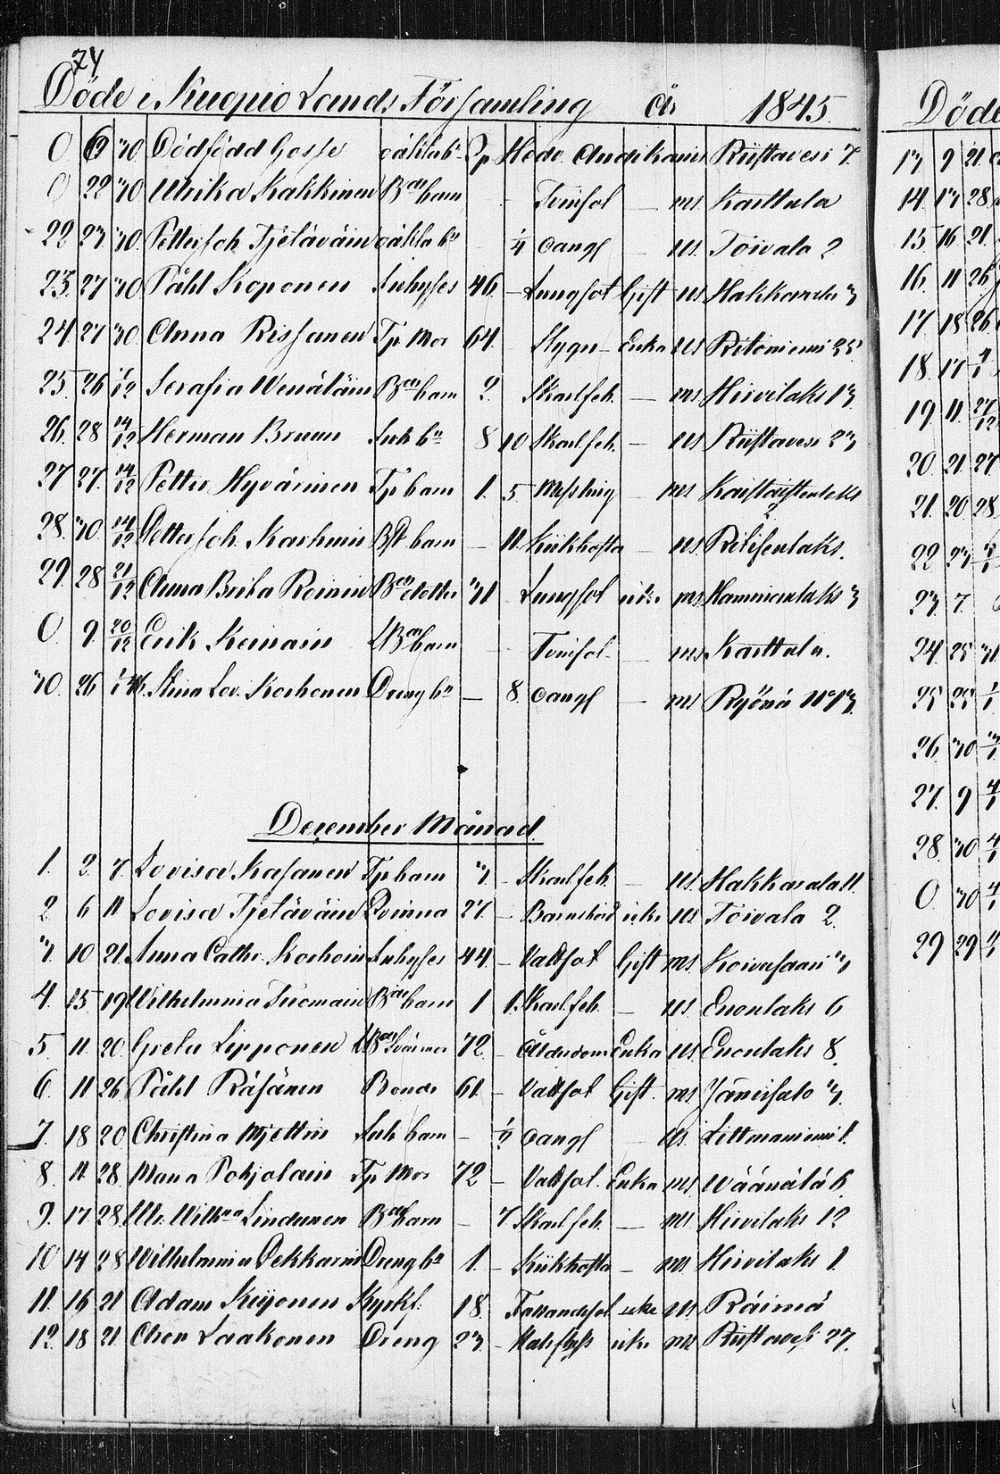 74
Döde i Kuopio Lands Församling år 1845.
0 6 30 Dödfödd Gosse oäkta bn Hede. Andikainen Riistavesi 7
0 22 30 Ulrika Kakkinen Bde barn Tvinsot — ms Karttula
22 23 30 Petter Joh Tjeläväin oäkta bn 1/4 oangf ms Toivala 2
23. 27 30 Påhl Koponen Inhyses 46. — Lungsot Gift ms Hakkarala 3
24 27 30. Anna Rissanen Tp Mor 64. Slygn — Enka ms Ritoniemi 35
25 26 1/12 Serafia Wenäläin Bde barn 2. Skarlfeb. — ms Hirvilaks 13
26. 28 14/12 Herman Bruun Inh bn 8 10 Skarlfeb. — ms Riistavesi 23
27 27. 14/12 Petter Hyvärinen Tp barn 1. 5 Messling — ms
28. 30. 14/12 Petter Joh. Karhunen barn — 11. Kikhosta — ms Ritisenlaks.
29. 28 21/12 Anna Brita Roinin Bde dotter 31 — Lungsot icke ms Hamminlaks 3
0. 9. 20/12 Erik Keinain Bde barn Tvinsot. — ms Karttula.
30. 26 Stina Lov. Korhonen Dreng bn — 8. oangf — ms Ryönä No 13.
December Månad.
1. 2. 7. Lovisa Kasanen Tp barn 3. — Skarlfeb. — ms Hakkarala 11.
2 6 11 Lovisa Tjeläväin Qvinna 27. — Barnsbörd icke ms Toivala 2.
3. 10 21. Anna Cathr. Korhoin Inhyses 44 — Vattsot Gift ms Koivusaari 3
4. 15 19 Wilhelmina Tuomain Bde barn 1 1. Skarlfeb. — ms Enonlaks 6
5. 11 20. Greta Lipponen Svärmor 72 — Ålderdom Enka ms Enonlaks 8.
6. 11 26 Påhl Räsänen Bonde 61 — Vattsot Gift. ms Jänissalo 3.
7. 18 20 Christina Mjettin Inh barn — 1/4 oangf — ms Litmaniemi 1.
8. 11 28. Maria Pohjolain Tp Mor 72 — Vattsot. Enka ms Wäänälä 6.
9. 17 28. Ul. Wilhna Lindunen Bde barn — 7 Skarlfeb. — ms Hirvilaks 12
10 14 28 Wilhelmina Pekkarin Dreng bn 1. — Kikhosta — ms. Hirvilaks 1.
11. 16 21 Adam Kiyonen Kyrkf. 18. Fallandesot icke ms Räimä
12. 18 21. Olion Laakonen Dreng 23. — Halsfluss icke ms Riistavesi 27.
Döde
13 9 21
14. 13 28
15 16 21.
16. 11 26
17 18 26
18. 17 4/1
19 11. 27/12
20. 21. 27
21. 20 28.
22 23
23. 7
24. 25 31
25 25
26 30
27. 9 4/1
28. 30 4/1
0. 30 4/1
29 29